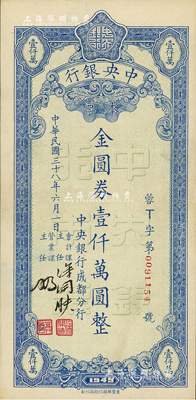 壹仟萬
壹仟萬
中央銀行
金圓券壹仟萬圓整
蓉T字第0091154號
中央銀行成都分行
會計課主任
營業課主任
中華民國三十八年六月一日
壹仟萬
壹仟萬
1949